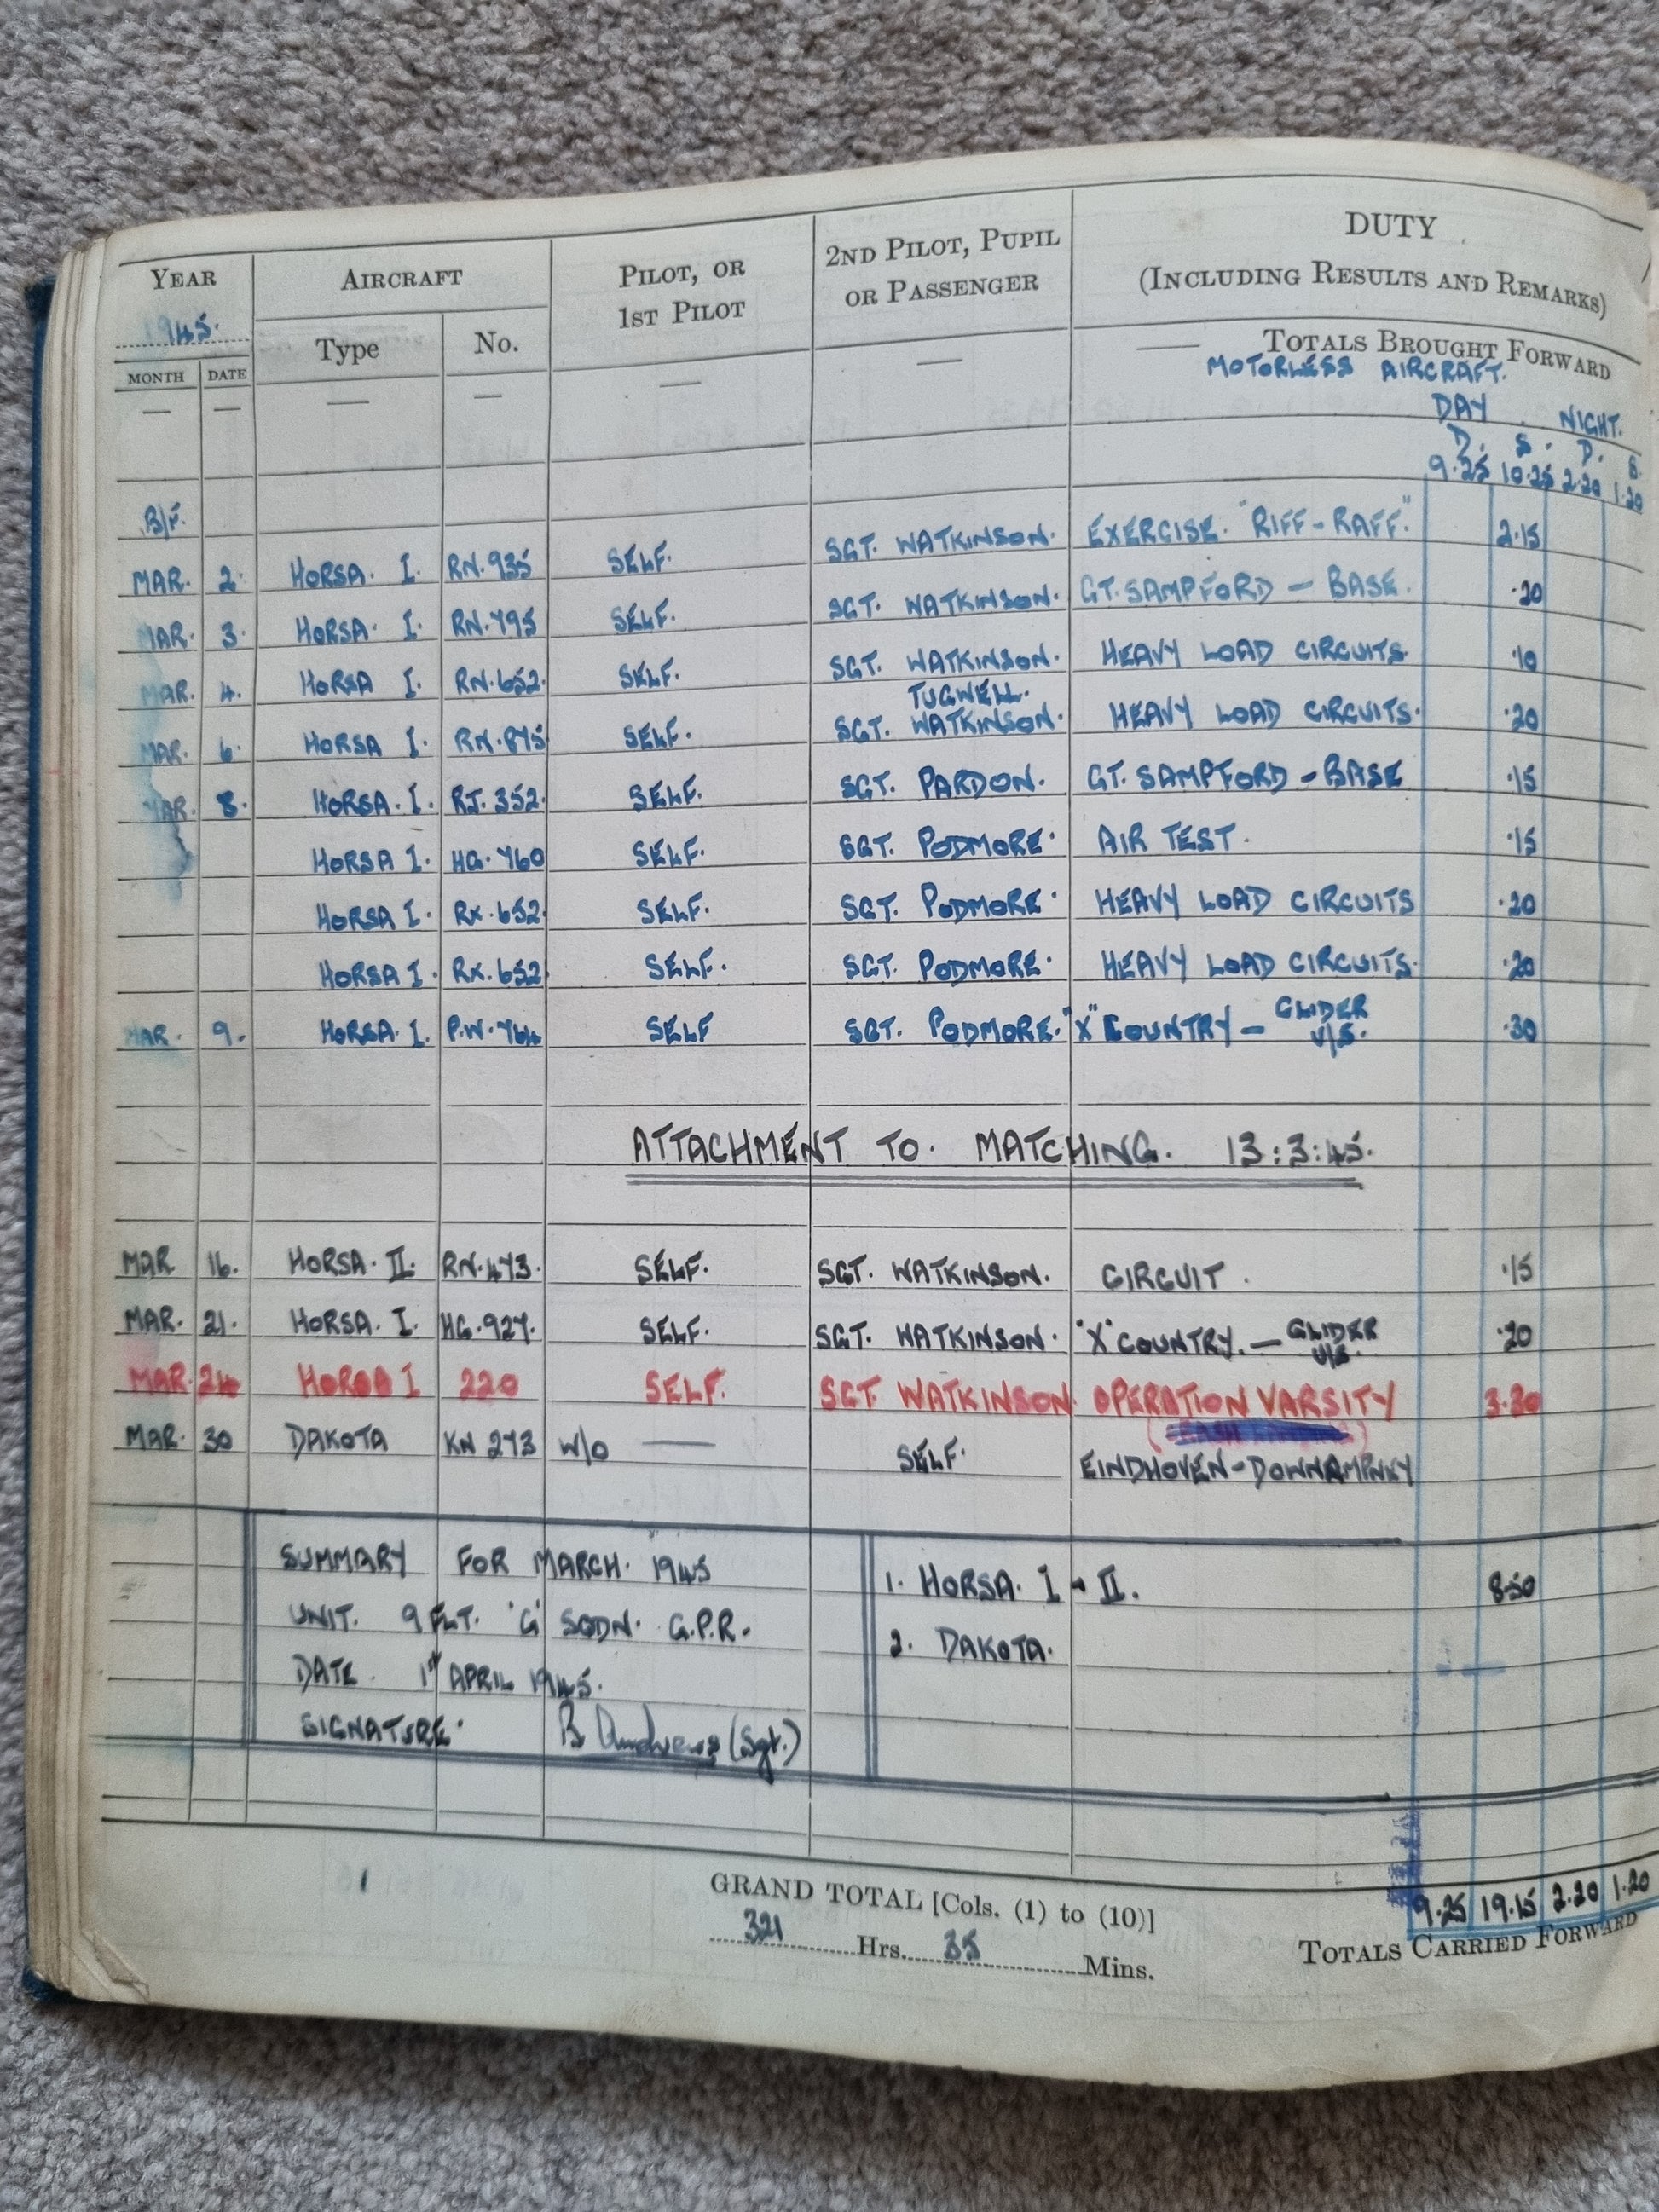 YEAR AIRCRAFT PILOT, OR 1ST PILOT 2ND PILOT, PUPIL OR PASSENGER DUTY (INCLUDING RESULTS AND REMARKS)
1945.
MONTH DATE Type No. TOTALS BROUGHT FORWARD
— — — — — — —
MOTORLESS AIRCRAFT.
DAY. NIGHT.
D. S. D. S.
B/F. 9.25 10.25 2.20 1.20
MAR. 2. HORSA. I. RN.935 SELF. SGT. WATKINSON. EXERCISE. "RIFF-RAFF." 2.15
MAR. 3. HORSA. I. RN.795 SELF. SGT. WATKINSON. GT. SAMPFORD — BASE. .20
MAR. 4. HORSA I. RN.652. SELF. SGT. WATKINSON. HEAVY LOAD CIRCUITS. .10
TUGWELL.
MAR. 6. HORSA I. RN.875 SELF. SGT. WATKINSON. HEAVY LOAD CIRCUITS. .20
MAR. 8. HORSA. I. RJ.352. SELF. SGT. PARDON. GT. SAMPFORD - BASE .15
HORSA I. HG.760 SELF. SGT. PODMORE. AIR TEST. .15
HORSA I. RX.652. SELF. SGT. PODMORE. HEAVY LOAD CIRCUITS .20
HORSA I. RX.652 SELF. SGT. PODMORE. HEAVY LOAD CIRCUITS. .20
MAR. 9. HORSA. I. P.W.764 SELF SGT. PODMORE. "X" COUNTRY — GLIDER U/S. .30
ATTACHMENT TO. MATCHING. 13:3:45.
MAR 16. HORSA. II. RN.473. SELF. SGT. WATKINSON. CIRCUIT. .15
MAR. 21. HORSA. I. HG.927. SELF. SGT. WATKINSON. "X" COUNTRY. — GLIDER U/S. .20
MAR. 24 HORSA I 220 SELF. SGT. WATKINSON. OPERATION VARSITY 3.30
MAR. 30 DAKOTA KN 273 W/O — SELF. EINDHOVEN-DOWNAMPNEY
SUMMARY FOR MARCH. 1945 1. HORSA. I - II. 8.50
UNIT. 9 FLT. 'G' SQDN. G.P.R. 2. DAKOTA.
DATE. 1st APRIL 1945.
SIGNATURE. B Andrews (Sgt.)
9.25 19.15 2.20 1.20
GRAND TOTAL [Cols. (1) to (10)]
321 Hrs. 35 Mins.
TOTALS CARRIED FORWARD